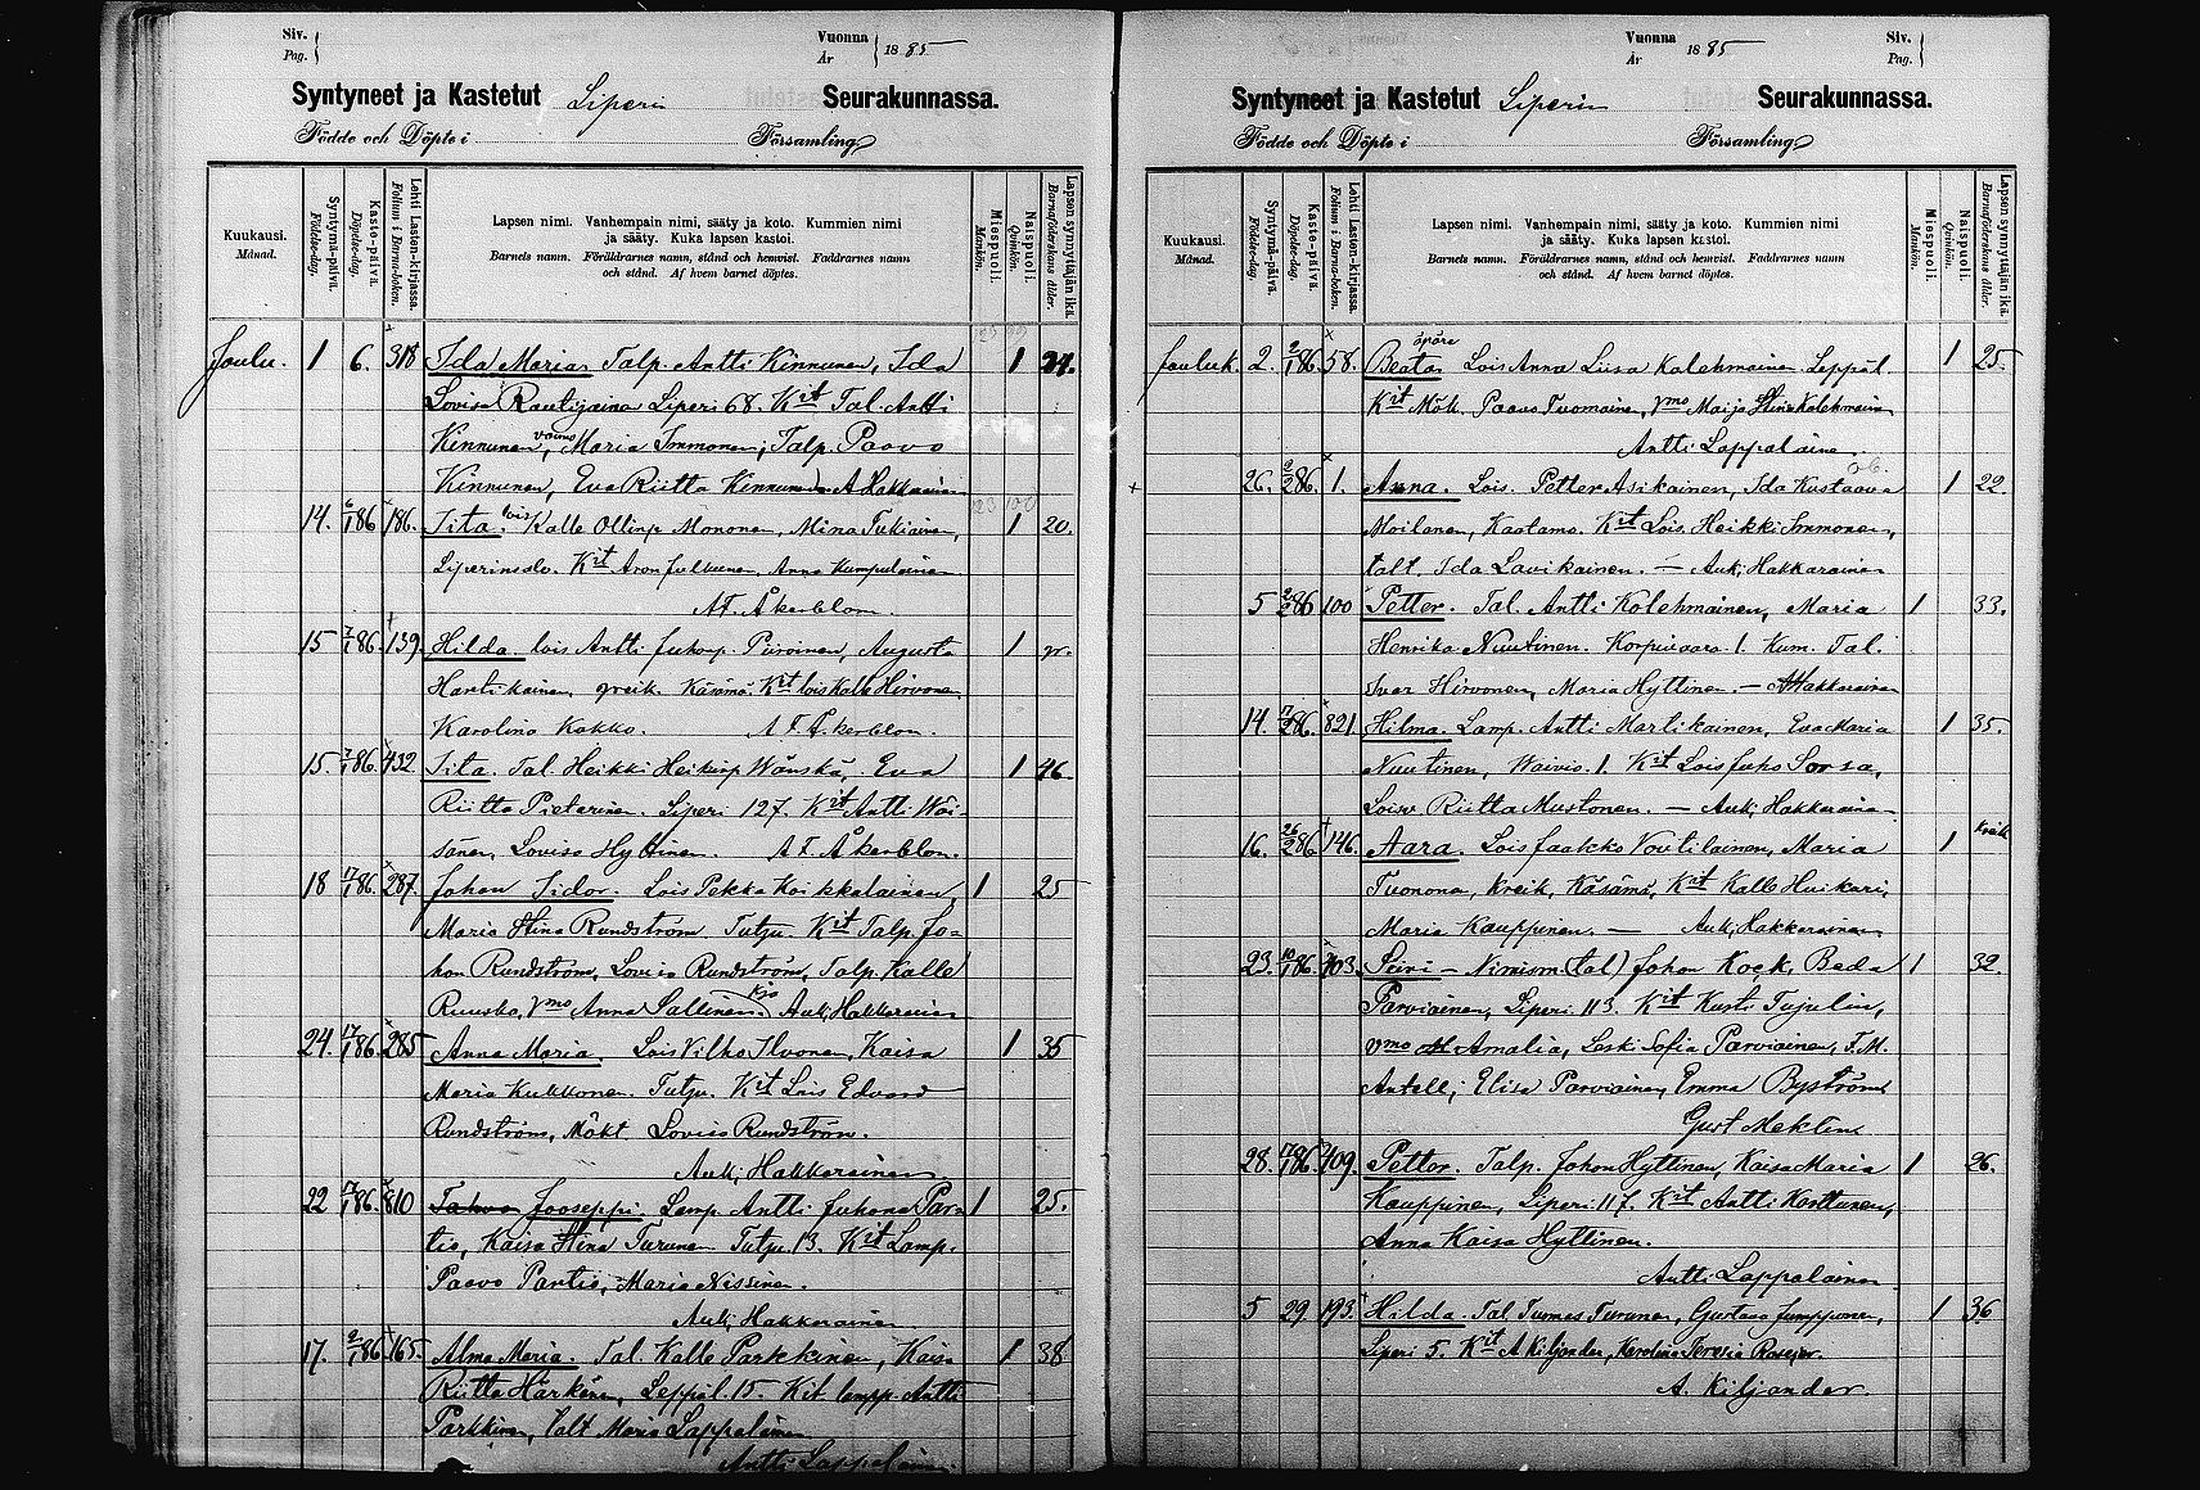 Siv.
Pag.
Vuonna
År
1885
Syntyneet ja Kastetut Liperin Seurakunnassa.
Födde och Döpte i Församling
Kuukausi.
Månad.
Syntymä-päivä.
Födelse-dag.
Kaste-päivä.
Döpelse-dag.
Lehti Lasten-kirjassa.
Folium i Barna-boken.
Lapsen nimi. Vanhempain nimi, sääty ja koto. Kummien nimi
ja sääty. Kuka lapsen kastoi.
Barnets namn. Föräldrarnes namn, stånd och hemvist. Faddrarnes namn
och stånd. Af hvem barnet döptes.
Miespuoli.
Mankön.
Naispuoli.
Qvinkön.
Lapsen synnyttäjän ikä.
Barnaföderskans ålder.
Joulu. 1 6. 318 Ida Maria Talp. Antti Kinnunen, Ida 1 24.
Lovisa Rautiainen Liperi 68. Kit Tal. Antti
Kinnunen, vaimo Maria Immonen; Talp. Paavo
Kinnunen, Eva Riitta Kinnunen A Hakkarainen
14. 6/1 86 186. Iita. lois Kalle Ollinp. Mononen, Mina Tukiainen, 1 20.
Liperinsalo. Kit Aron Julkunen, Anna Kumpulainen
A F. Åkerblom.
15 7/1 86. 139. Hilda. lois Antti Juhonp. Piiroinen, Augusta 1 gr.
Hartikainen, greik. Käsämä. Kit lois Kalle Hirvonen
Karolina Kokko. A F. Åkerblom.
15. 7/1 86. 432. Iita. Tal. Heikki Heikinp Wänskä, Eva 1 46.
Riitta Pietarinen. Liperi 127. Kit Antti Wäi-
sänen, Lovisa Hyttinen. A F. Åkerblom.
18 17/1 86. 287. Johan Sidor. Lois Pekka Koikkalainen, 1 25
Maria Stina Rundström. Tutju. Kit Talp. Jo-
han Rundström, Lovisa Rundström, Talp. Kalle
Ruusko, vmo Anna Sallinen. Auk. Hakkarainen
24. 17/1 86. 285 Anna Maria. Lois Vilho Ilvonen, Kaisa 1 35
Maria Kukkonen. Tutju. Kit Lois Edvard
Rundström, Mökt. Lovisa Rundström.
Auk. Hakkarainen
22 17/1 86. 810 Tahvo Jooseppi. Lamp. Antti Juhona Par- 1 25.
tio, Kaisa Stina Turunen Tutju 13. Kit Lamp.
Paavo Partio, Maria Nissinen.
Auk. Hakkarainen
17. 2/1 86. 165. Alma Maria. Tal. Kalle Parkkinen, Kaisa 1 38
Riitta Härkönen, Leppäl. 15. Kit lampp. Antti
Parkkinen, talt Maria Lappalainen
Antti Lappalainen.
Vuonna
År
1885
Siv.
Pag.
Syntyneet ja Kastetut Liperin Seurakunnassa.
Födde och Döpte i Församling
Kuukausi.
Månad.
Syntymä-päivä.
Födelse-dag.
Kaste-päivä.
Döpelse-dag.
Lehti Lasten-kirjassa.
Folium i Barna-boken.
Lapsen nimi. Vanhempain nimi, sääty ja koto. Kummien nimi
ja sääty. Kuka lapsen kastoi.
Barnets namn. Föräldrarnes namn, stånd och hemvist. Faddrarnes namn
och stånd. Af hvem barnet döptes.
Miespuoli.
Mankön.
Naispuoli.
Qvinkön.
Lapsen synnyttäjän ikä.
Barnaföderskans ålder.
äpärä
Jouluk. 2. 2/1 86. 58. Beata Lois Anna Liisa Kolehmainen. Leppäl. 1 25.
Kit Mök. Paavo Tuomainen, vmo Maija Stina Kolehmainen
Antti Lappalainen.
26. 2/2 86. 1. Anna. Lois. Petter Asikainen, Ida Kustaava 1 22.
Moilanen, Kaatamo. Kit Lois. Heikki Immonen,
talt. Ida Lavikainen. — Auk. Hakkarainen
5 2/2 86 100 Petter. Tal. Antti Kolehmainen, Maria 1 33.
Henrika Nuutinen. Korpivaara 1. Kum. Tal.
Ivar Hirvonen, Maria Hyttinen. — A Hakkarainen
14. 17/2 86. 821. Hilma. Lamp. Antti Martikainen, Eva Maria 1 35.
Nuutinen, Waivio. 1. Kit Lois Juho Sorsa,
Loisv. Riitta Mustonen. — Auk. Hakkarainen
16. 26/2 86 146. Aara. Lois Jaakko Voutilainen, Maria 1 Kreik
Tuononen, Kreik, Käsämä, Kit Kalle Huikari,
Maria Kauppinen. — Auk. Hakkarainen
23. 10/1 86. 403. Siiri — Nimism. (tal) Johan Kock, Beda 1 32.
Parviainen, Liperi 113. Kit Kusti Tujulin,
vmo Amalia, Leski Sofia Parviainen, F. M.
Antell; Elisa Parviainen, Emma Byström
Gust Meklin
28. 17/1 86. 409. Petter. Talp. Johan Hyttinen, Kaisa Maria 1 26.
Kauppinen, Liperi 117. Kit Antti Korttunen,
Anna Kaisa Hyttinen.
Antti Lappalainen
5 29. 193. Hilda. Tal. Tuomas Turunen, Gustava Jumpponen, 1 36
Liperi 5. Kit A Kiljander, Karolina Teresia
A. Kiljander.